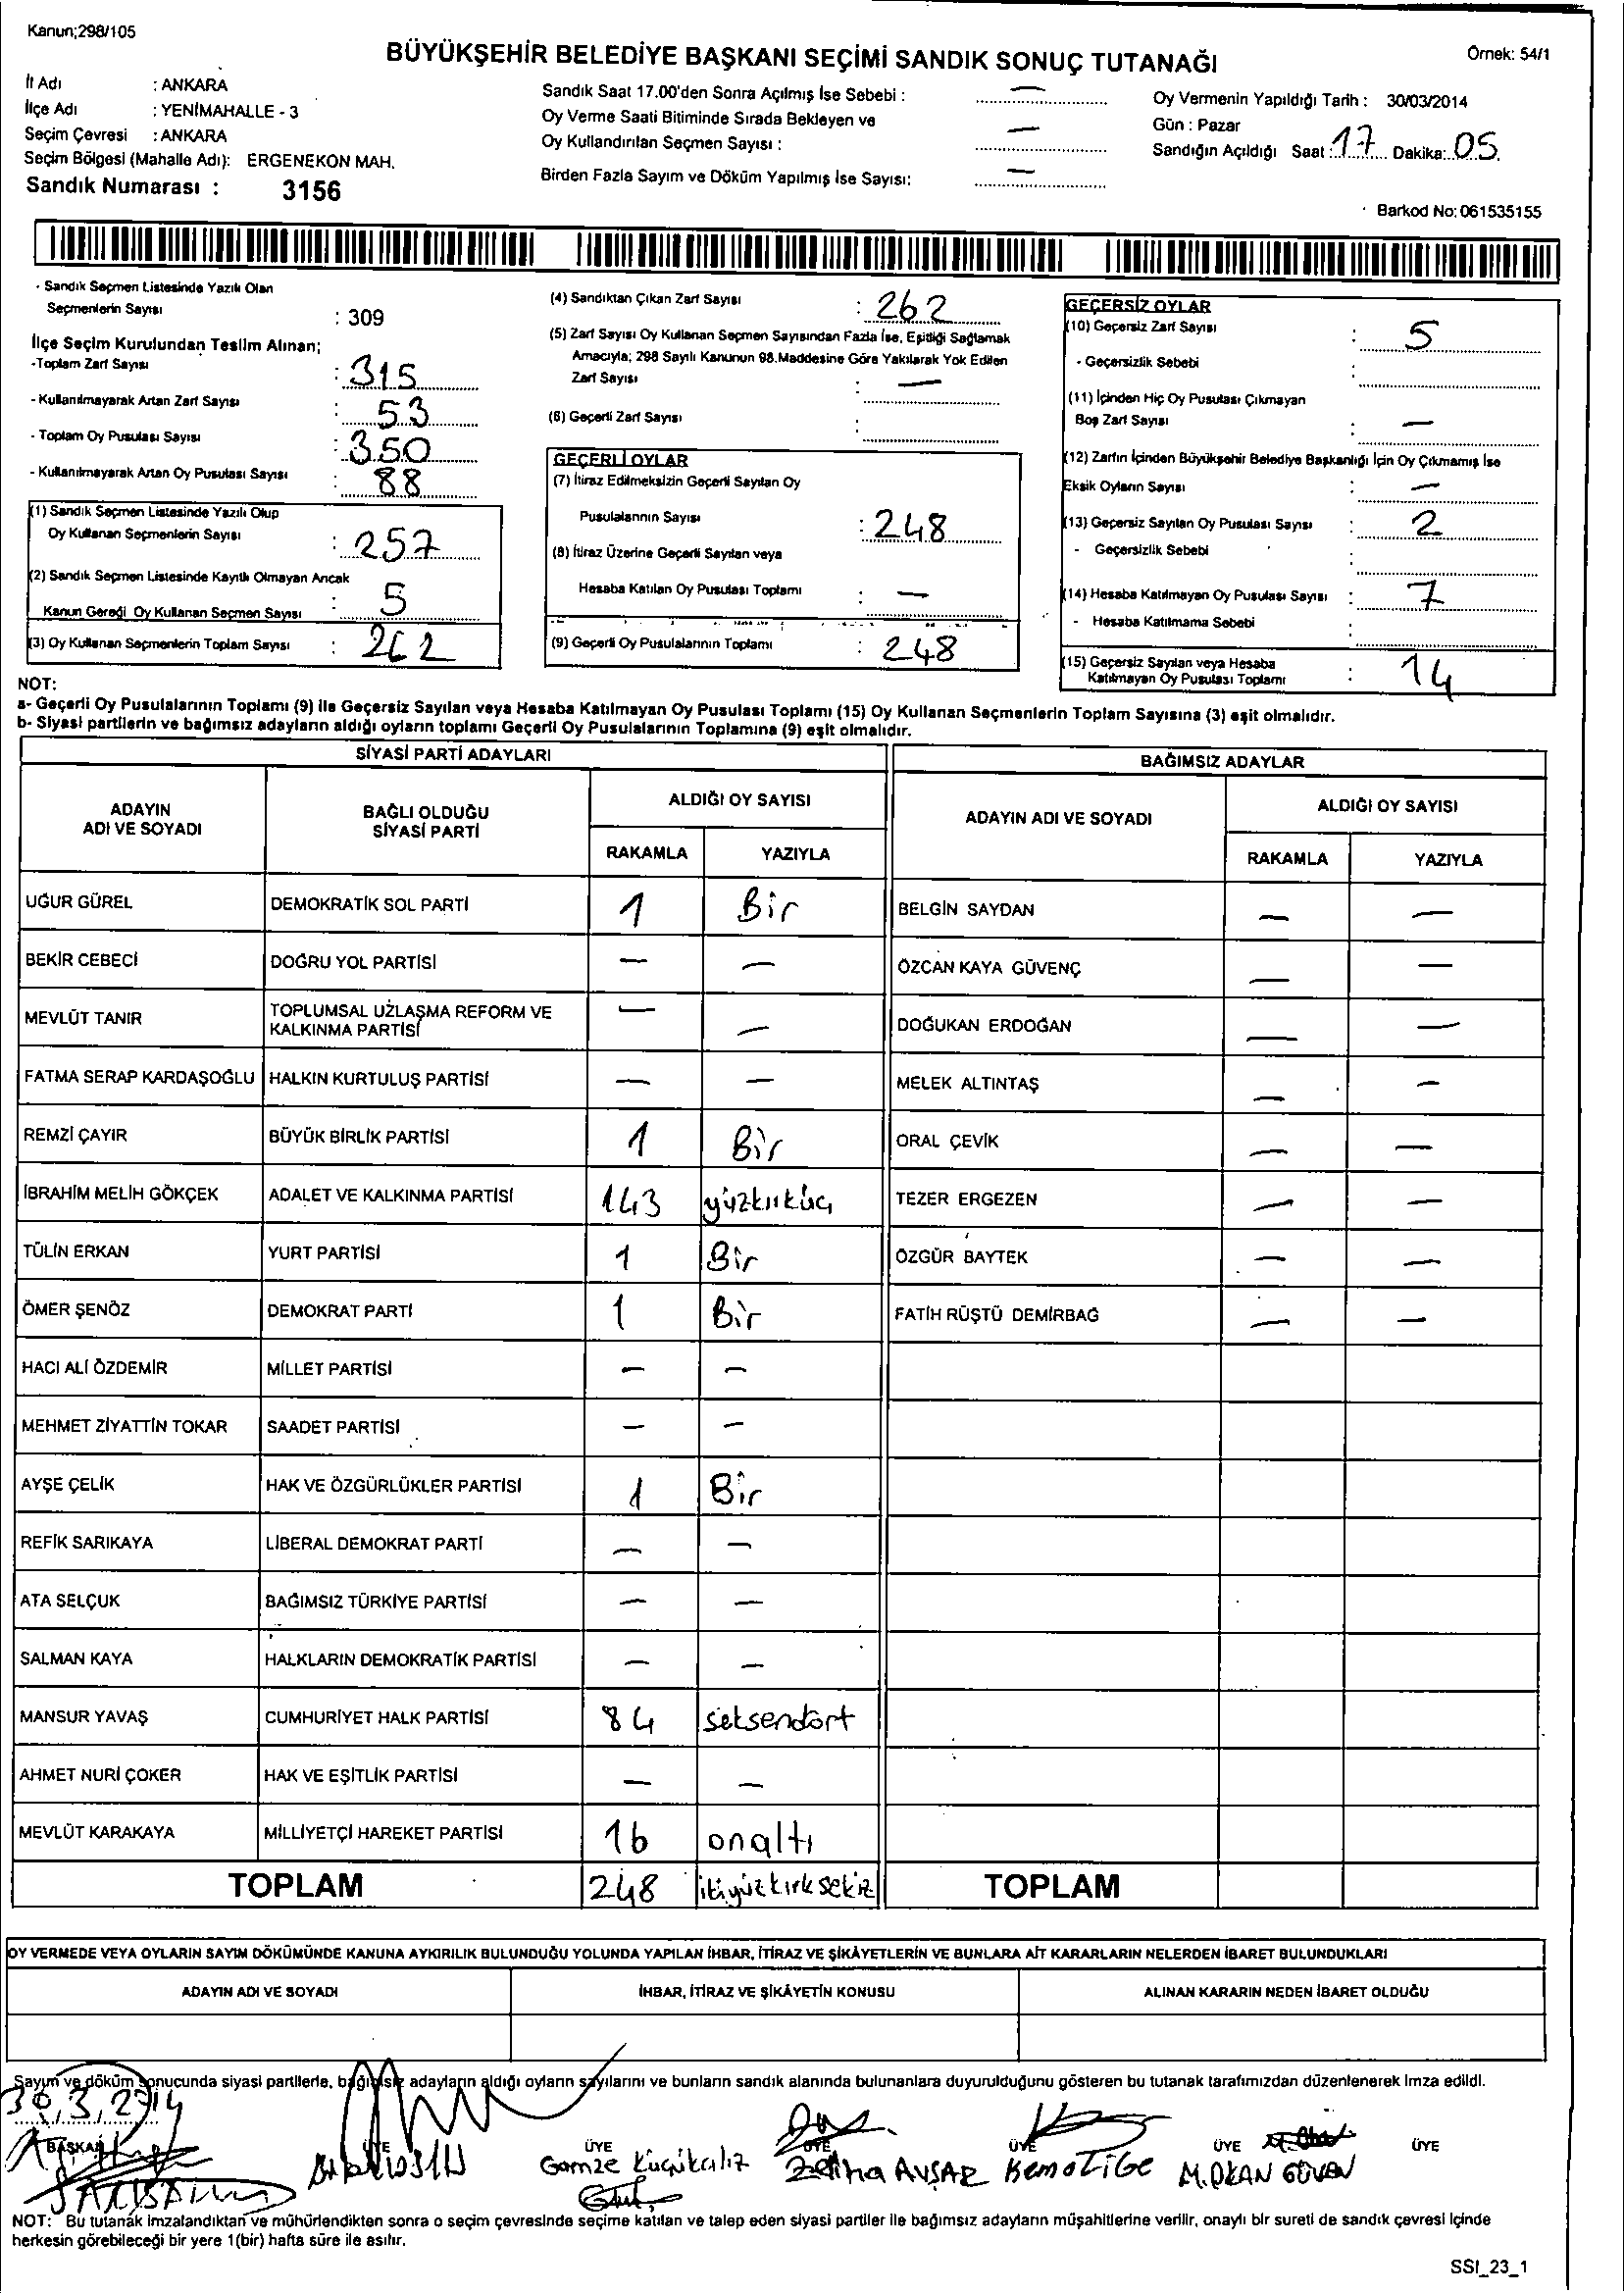 Kanun;298/105
BÜYÜKŞEHİR BELEDİYE BAŞKANI SEÇİMİ SANDIK SONUÇ TUTANAĞI
Örnek: 54/1
İl Adı : ANKARA
İlçe Adı : YENİMAHALLE - 3
Seçim Çevresi : ANKARA
Seçim Bölgesi (Mahalle Adı): ERGENEKON MAH.
Sandık Numarası : 3156
Sandık Saat 17.00'den Sonra Açılmış İse Sebebi : —
Oy Verme Saati Bitiminde Sırada Bekleyen ve
Oy Kullandırılan Seçmen Sayısı : —
Birden Fazla Sayım ve Döküm Yapılmış İse Sayısı: —
Oy Vermenin Yapıldığı Tarih : 30/03/2014
Gün : Pazar
Sandığın Açıldığı Saat : 17 Dakika: 05
Barkod No: 061535155
- Sandık Seçmen Listesinde Yazılı Olan
Seçmenlerin Sayısı : 309
İlçe Seçim Kurulundan Teslim Alınan;
-Toplam Zarf Sayısı : 315
- Kullanılmayarak Artan Zarf Sayısı : 53
- Toplam Oy Pusulası Sayısı : 350
- Kullanılmayarak Artan Oy Pusulası Sayısı : 88
(1) Sandık Seçmen Listesinde Yazılı Olup
Oy Kullanan Seçmenlerin Sayısı : 257
(2) Sandık Seçmen Listesinde Kayıtlı Olmayan Ancak
Kanun Gereği Oy Kullanan Seçmen Sayısı : 5
(3) Oy Kullanan Seçmenlerin Toplam Sayısı : 262
(4) Sandıktan Çıkan Zarf Sayısı : 262
(5) Zarf Sayısı Oy Kullanan Seçmen Sayısından Fazla İse, Eşitliği Sağlamak
Amacıyla; 298 Sayılı Kanunun 98.Maddesine Göre Yakılarak Yok Edilen
Zarf Sayısı : —
(6) Geçerli Zarf Sayısı :
GEÇERLİ OYLAR
(7) İtiraz Edilmeksizin Geçerli Sayılan Oy
Pusulalarının Sayısı : 248
(8) İtiraz Üzerine Geçerli Sayılan veya
Hesaba Katılan Oy Pusulası Toplamı : —
(9) Geçerli Oy Pusulalarının Toplamı : 248
GEÇERSİZ OYLAR
(10) Geçersiz Zarf Sayısı : 5
- Geçersizlik Sebebi :
(11) İçinden Hiç Oy Pusulası Çıkmayan
Boş Zarf Sayısı : —
(12) Zarfın İçinden Büyükşehir Belediye Başkanlığı İçin Oy Çıkmamış İse
Eksik Oyların Sayısı : —
(13) Geçersiz Sayılan Oy Pusulası Sayısı : 2
- Geçersizlik Sebebi :
(14) Hesaba Katılmayan Oy Pusulası Sayısı : 7
- Hesaba Katılmama Sebebi :
(15) Geçersiz Sayılan veya Hesaba
Katılmayan Oy Pusulası Toplamı : 14
NOT:
a- Geçerli Oy Pusulalarının Toplamı (9) ile Geçersiz Sayılan veya Hesaba Katılmayan Oy Pusulası Toplamı (15) Oy Kullanan Seçmenlerin Toplam Sayısına (3) eşit olmalıdır.
b- Siyasi partilerin ve bağımsız adayların aldığı oyların toplamı Geçerli Oy Pusulalarının Toplamına (9) eşit olmalıdır.
SİYASİ PARTİ ADAYLARI
ADAYIN ADI VE SOYADI
BAĞLI OLDUĞU SİYASİ PARTİ
ALDIĞI OY SAYISI
RAKAMLA YAZIYLA
UĞUR GÜREL DEMOKRATİK SOL PARTİ 1 Bir
BEKİR CEBECİ DOĞRU YOL PARTİSİ — —
MEVLÜT TANIR TOPLUMSAL UZLAŞMA REFORM VE KALKINMA PARTİSİ — —
FATMA SERAP KARDAŞOĞLU HALKIN KURTULUŞ PARTİSİ — —
REMZİ ÇAYIR BÜYÜK BİRLİK PARTİSİ 1 Bir
İBRAHİM MELİH GÖKÇEK ADALET VE KALKINMA PARTİSİ 143 yüzkırküç
TÜLİN ERKAN YURT PARTİSİ 1 Bir
ÖMER ŞENÖZ DEMOKRAT PARTİ 1 Bir
HACI ALİ ÖZDEMİR MİLLET PARTİSİ — —
MEHMET ZİYATTİN TOKAR SAADET PARTİSİ — —
AYŞE ÇELİK HAK VE ÖZGÜRLÜKLER PARTİSİ 1 Bir
REFİK SARIKAYA LİBERAL DEMOKRAT PARTİ — —
ATA SELÇUK BAĞIMSIZ TÜRKİYE PARTİSİ — —
SALMAN KAYA HALKLARIN DEMOKRATİK PARTİSİ — —
MANSUR YAVAŞ CUMHURİYET HALK PARTİSİ 84 seksendört
AHMET NURİ ÇOKER HAK VE EŞİTLİK PARTİSİ — —
MEVLÜT KARAKAYA MİLLİYETÇİ HAREKET PARTİSİ 16 onaltı
TOPLAM 248 ikiyüzkırksekiz
BAĞIMSIZ ADAYLAR
ADAYIN ADI VE SOYADI
ALDIĞI OY SAYISI
RAKAMLA YAZIYLA
BELGİN SAYDAN — —
ÖZCAN KAYA GÜVENÇ — —
DOĞUKAN ERDOĞAN — —
MELEK ALTINTAŞ — —
ORAL ÇEVİK — —
TEZER ERGEZEN — —
ÖZGÜR BAYTEK — —
FATİH RÜŞTÜ DEMİRBAĞ — —
TOPLAM
OY VERMEDE VEYA OYLARIN SAYIM DÖKÜMÜNDE KANUNA AYKIRILIK BULUNDUĞU YOLUNDA YAPILAN İHBAR, İTİRAZ VE ŞİKÂYETLERİN VE BUNLARA AİT KARARLARIN NELERDEN İBARET BULUNDUKLARI
ADAYIN ADI VE SOYADI İHBAR, İTİRAZ VE ŞİKÂYETİN KONUSU ALINAN KARARIN NEDEN İBARET OLDUĞU
Sayım ve döküm sonucunda siyasi partilerle, bağımsız adayların aldığı oyların sayılarını ve bunların sandık alanında bulunanlara duyurulduğunu gösteren bu tutanak tarafımızdan düzenlenerek imza edildi.
30,3,2014
BAŞKAN ÜYE ÜYE ÜYE ÜYE ÜYE ÜYE
Gamze Küçükcılız Zeliha AVŞAR Kemal İGE M.OKAN GÜVEN
NOT: Bu tutanak imzalandıktan ve mühürlendikten sonra o seçim çevresinde seçime katılan ve talep eden siyasi partiler ile bağımsız adayların müşahitlerine verilir, onaylı bir sureti de sandık çevresi içinde
herkesin görebileceği bir yere 1(bir) hafta süre ile asılır.
SSI_23_1